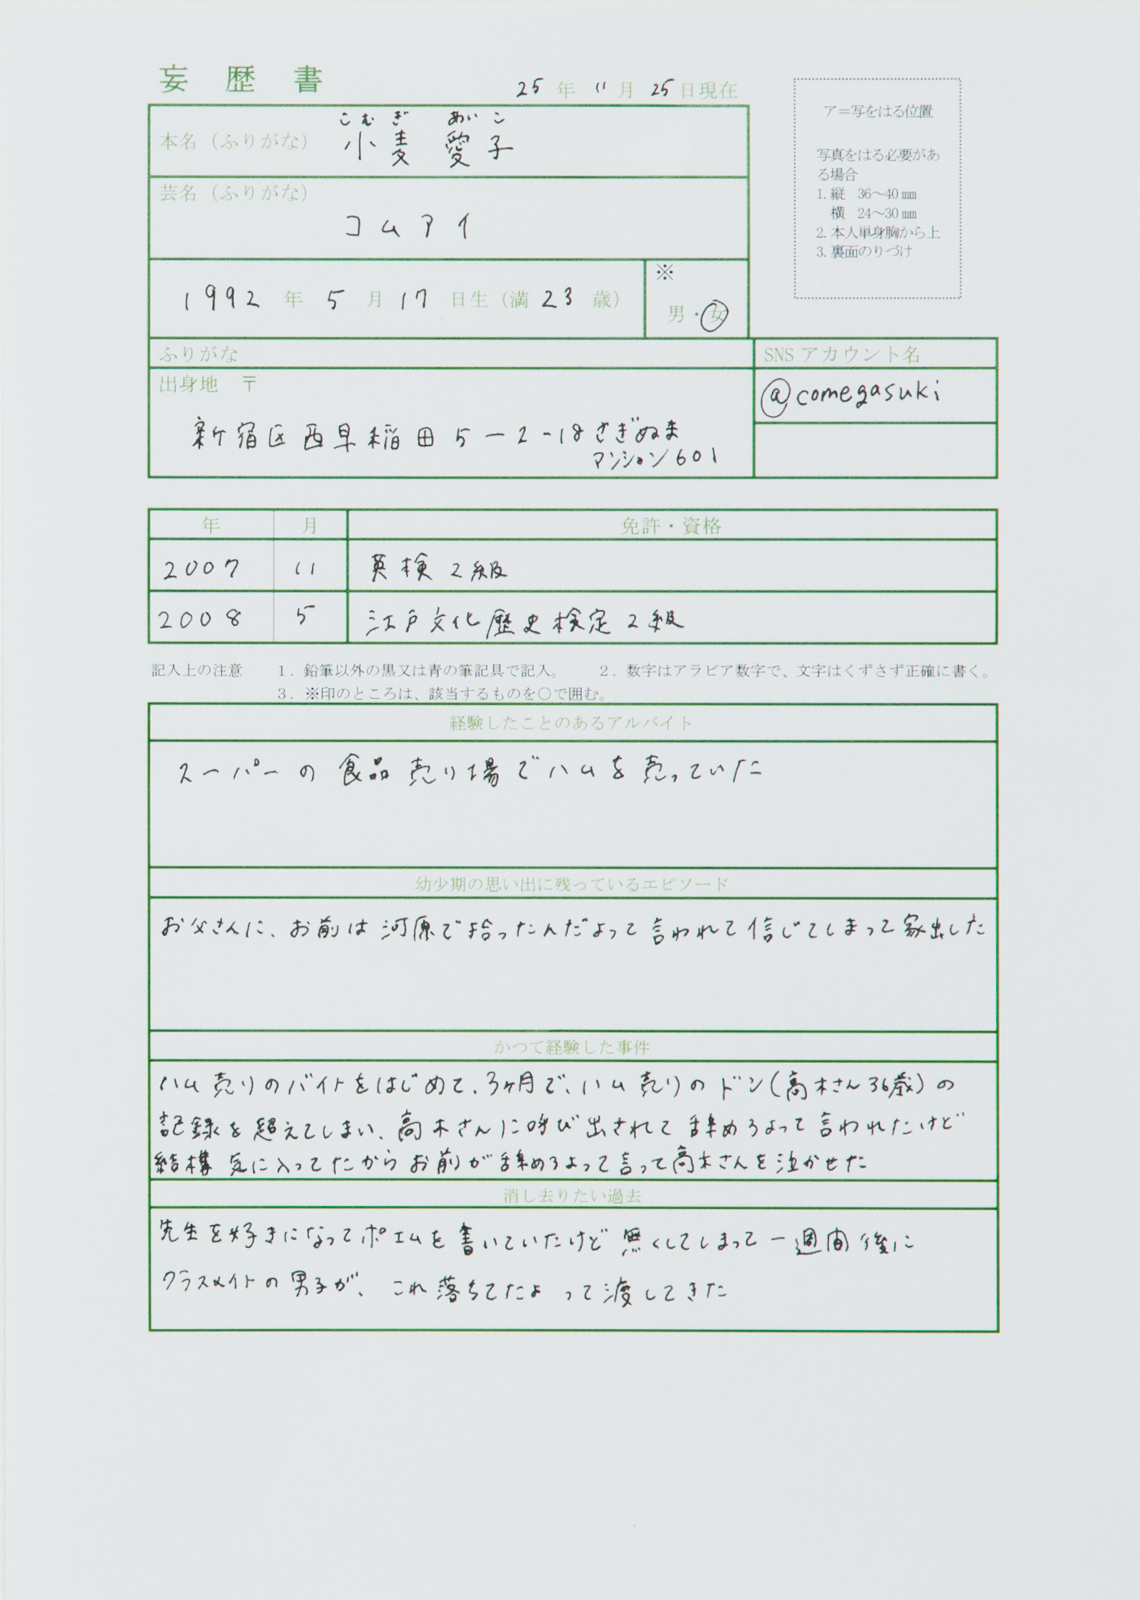 妄歴書
25年11月25日現在
ア=写をはる位置
写真をはる必要があ
る場合
1. 縦 36〜40㎜
横 24〜30㎜
2. 本人単身胸から上
3. 裏面のりづけ
こむぎ めいこ
本名（ふりがな） 小麦 愛子
芸名（ふりがな）
コムアイ
1992年5月17日生（満23歳）
※
男・女
ふりがな
SNSアカウント名
出身地 〒
@comegasuki
新宿区西早稲田5-2-18さぎぬま
マンション601
年 月 免許・資格
2007 11 英検2級
2008 5 江戸文化歴史検定2級
記入上の注意 1．鉛筆以外の黒又は青の筆記具で記入。 2．数字はアラビア数字で、文字はくずさず正確に書く。
3．※印のところは、該当するものを○で囲む。
経験したことのあるアルバイト
スーパーの食品売り場でハムを売っていた
幼少期の思い出に残っているエピソード
お父さんに、お前は河原で拾ったんだよって言われて信じてしまって家出した
かつて経験した事件
ハム売りのバイトをはじめて、3ヶ月で、ハム売りのドン(高木さん36歳)の
記録を超えてしまい、高木さんに呼び出されて辞めろよって言われたけど
結構気に入ってたからお前が辞めろよって言って高木さんを泣かせた
消し去りたい過去
先生を好きになってポエムを書いていたけど無くしてしまって一週間後に
クラスメイトの男子が、これ落ちてたよって渡してきた